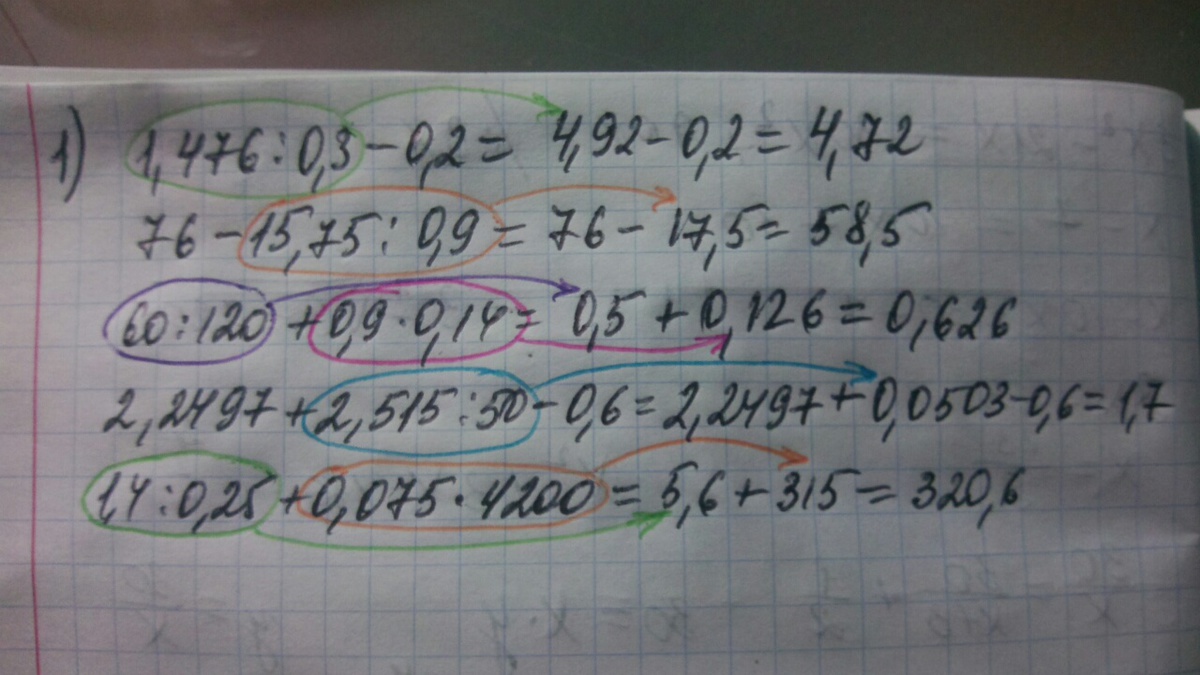 1) 1,476 : 0,3 - 0,2 = 4,92 - 0,2 = 4,72
76 - 15,75 : 0,9 = 76 - 17,5 = 58,5
60 : 120 + 0,9 · 0,14 = 0,5 + 0,126 = 0,626
2,2497 + 2,515 : 50 - 0,6 = 2,2497 + 0,0503 - 0,6 = 1,7
1,4 : 0,25 + 0,075 · 4200 = 5,6 + 315 = 320,6